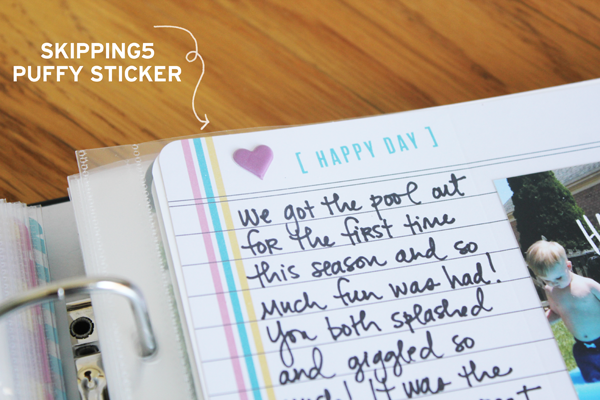 SKIPPING5
PUFFY STICKER
[ HAPPY DAY ]
We got the pool out
for the first time
this season and so
much fun was had!
You both splashed
and giggled so
much! It was the